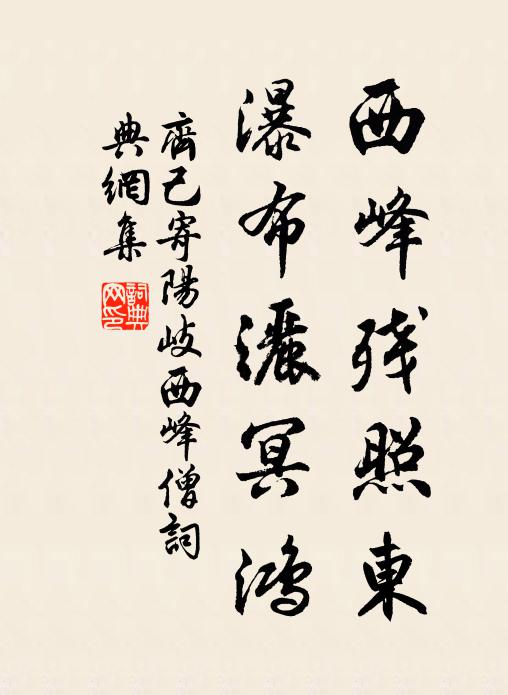 西峰残照東
瀑布灑冥鴻
齊己寄陽岐西峰僧詞
典網集
詞典網印